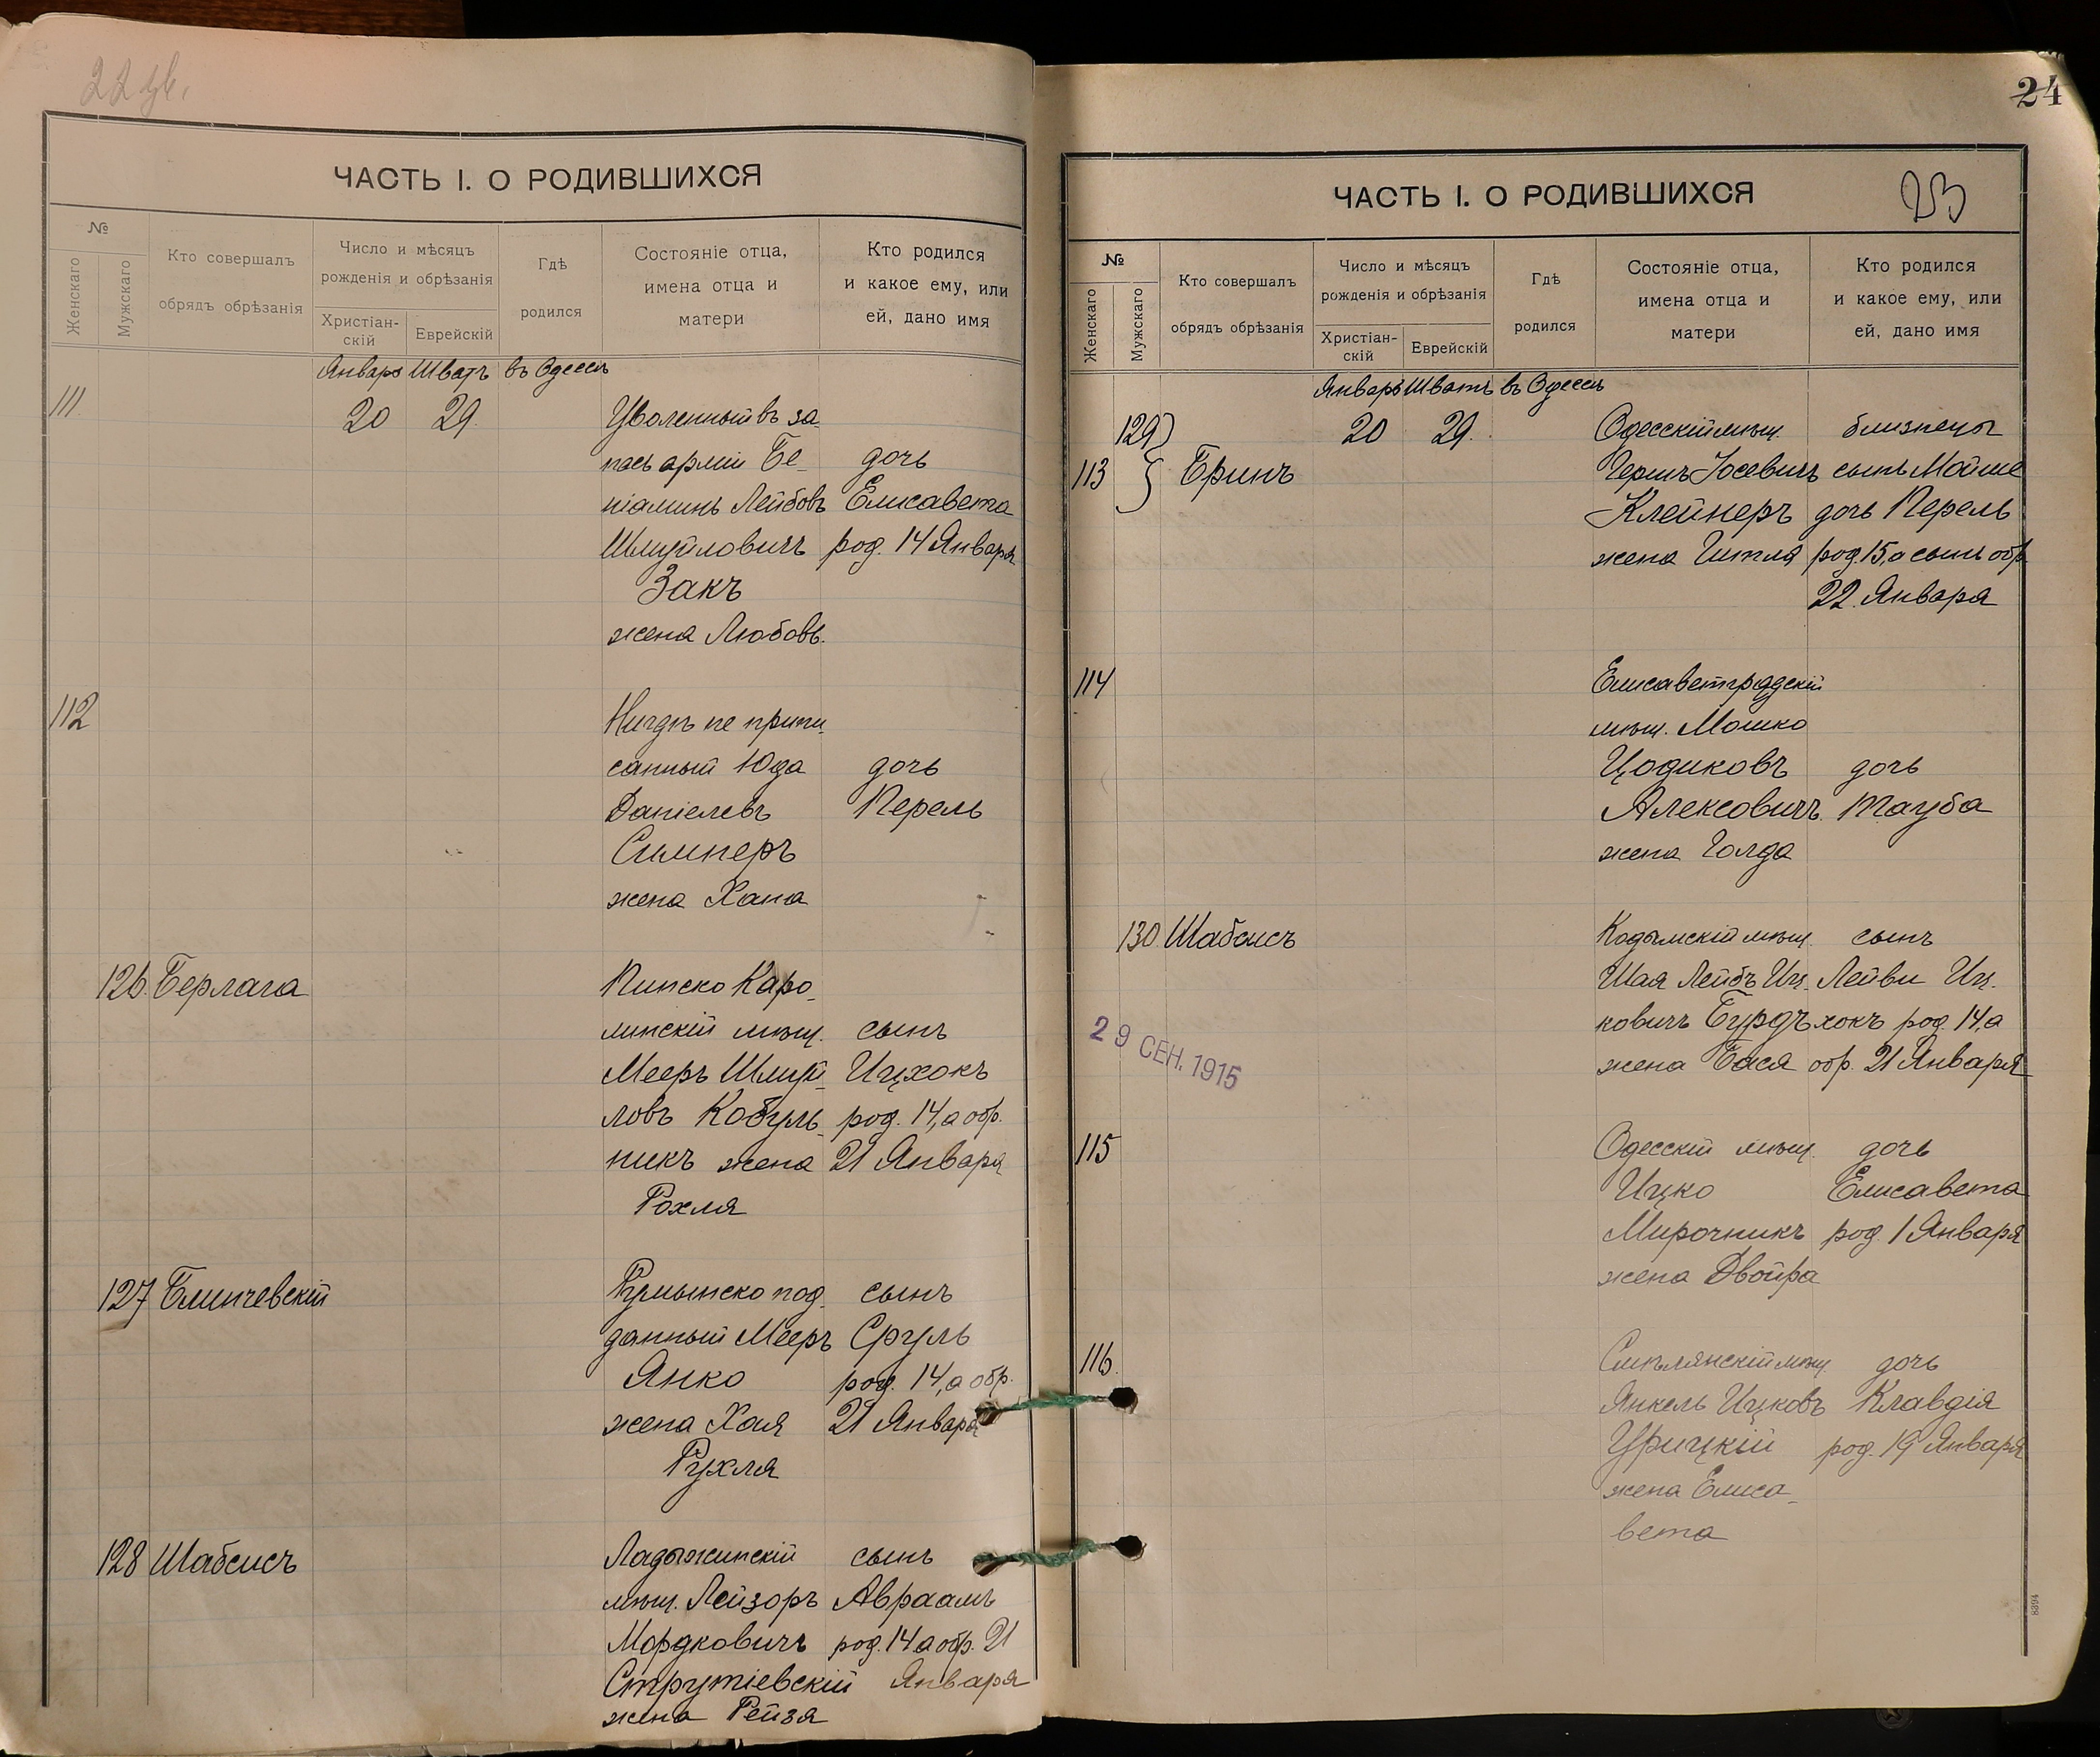 22 об.
ЧАСТЬ I. О РОДИВШИХСЯ
№
Женскаго
Мужскаго
Кто совершалъ
обрядъ обрѣзанія
Число и мѣсяцъ
рожденія и обрѣзанія
Христіан-
скій
Еврейскій
Гдѣ
родился
Состояніе отца,
имена отца и
матери
Кто родился
и какое ему, или
ей, дано имя
Январь Шватъ въ Одессѣ
111 20 29 Уволенный въ за-
пасъ арміи Бе- дочь
ніаминъ Лейбовъ Елисавета
Шмуйловичъ род. 14 Января
Закъ
жена Любовь.
112 Нигдѣ не припи-
санный Юда дочь
Даніелевъ Перель
Симперъ
жена Хана
126. Берлага Пинско Каро-
линскій мѣщ. сынъ
Мееръ Шмуй- Ицхокъ
ловъ Кобуль- род. 14, а обр.
никъ жена 21 Января
Рохля
127 Блинчевскій Румынско под- сынъ
данный Мееръ Сруль
Янко род. 14, а обр.
жена Хая 21 Января
Рухля
128 Шабсисъ Ладыжинскій сынъ
мѣщ. Лейзоръ Авраамъ
Мордковичъ род. 14 а обр. 21
Струтіевскій Января
жена Рейзя
24
ЧАСТЬ I. О РОДИВШИХСЯ
23
№
Женскаго
Мужскаго
Кто совершалъ
обрядъ обрѣзанія
Число и мѣсяцъ
рожденія и обрѣзанія
Христіан-
скій
Еврейскій
Гдѣ
родился
Состояніе отца,
имена отца и
матери
Кто родился
и какое ему, или
ей, дано имя
Январь Шватъ въ Одессѣ
129 20 29. Одесскій мѣщ. близнецы
113 Бринъ Гершъ Іосевичъ сынъ Мойше
Клейнеръ дочь Перель
жена Гитля род. 15, а сынъ обр.
22. Января
114 Елисаветградскій
мѣщ. Мошко
Цодиковъ дочь
Алексовичъ. Тауба
жена Голда
130 Шабсисъ Кодымскій мѣщ. сынъ
Шая Лейбъ Иц- Лейви Иц-
ковичъ Бурдъ хокъ род. 14, а
жена Бася обр. 21 Января
29 СЕН. 1915
115 Одесскій мѣщ. дочь
Ицко Елисавета
Мирочникъ род. 1 Января
жена Двойра
116 Смѣлянскій мѣщ. дочь
Янкель Ицковъ Клавдія
Урицкій род. 19 Января
жена Елиса-
вета
8394